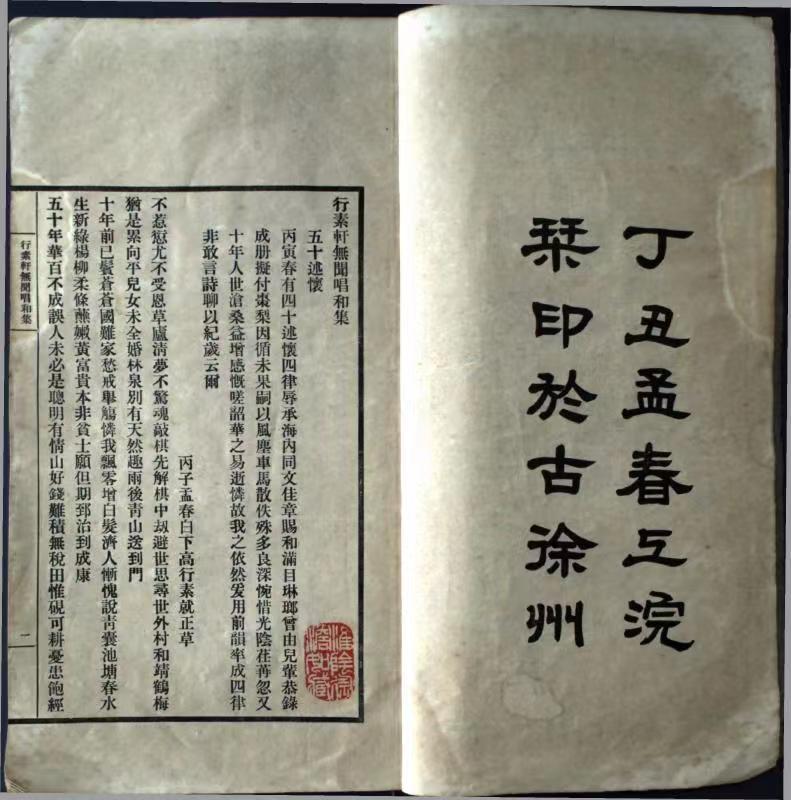 丁丑孟春上浣
栞印於古徐州
行素軒無聞唱和集
五十述懷
丙寅春有四十述懷四律辱承海內同文佳章賜和滿目琳瑯曾由兒輩恭錄
成册擬付棗梨因循未果嗣以風塵車馬散佚殊多良深惋惜光陰荏苒忽又
十年人世滄桑益增感慨嗟韶華之易逝憐故我之依然爰用前韻率成四律
非敢言詩聊以紀歲云爾
丙子孟春白下高行素就正草
不惹愆尤不受恩草廬淸夢不驚魂敲棋先解棋中刼避世思尋世外村和靖鶴梅
猶是累向平兒女未全婚林泉別有天然趣雨後靑山送到門
十年前已鬢蒼蒼國難家愁戒舉觴憐我飄零增白髮濟人慚愧說靑囊池塘春水
生新綠楊柳柔條蘸嫩黃富貴本非貧士願但期郅治到成康
五十年華百不成誤人未必是聰明有情山好錢難積無稅田惟硯可耕憂患飽經
行素軒無聞唱和集
一